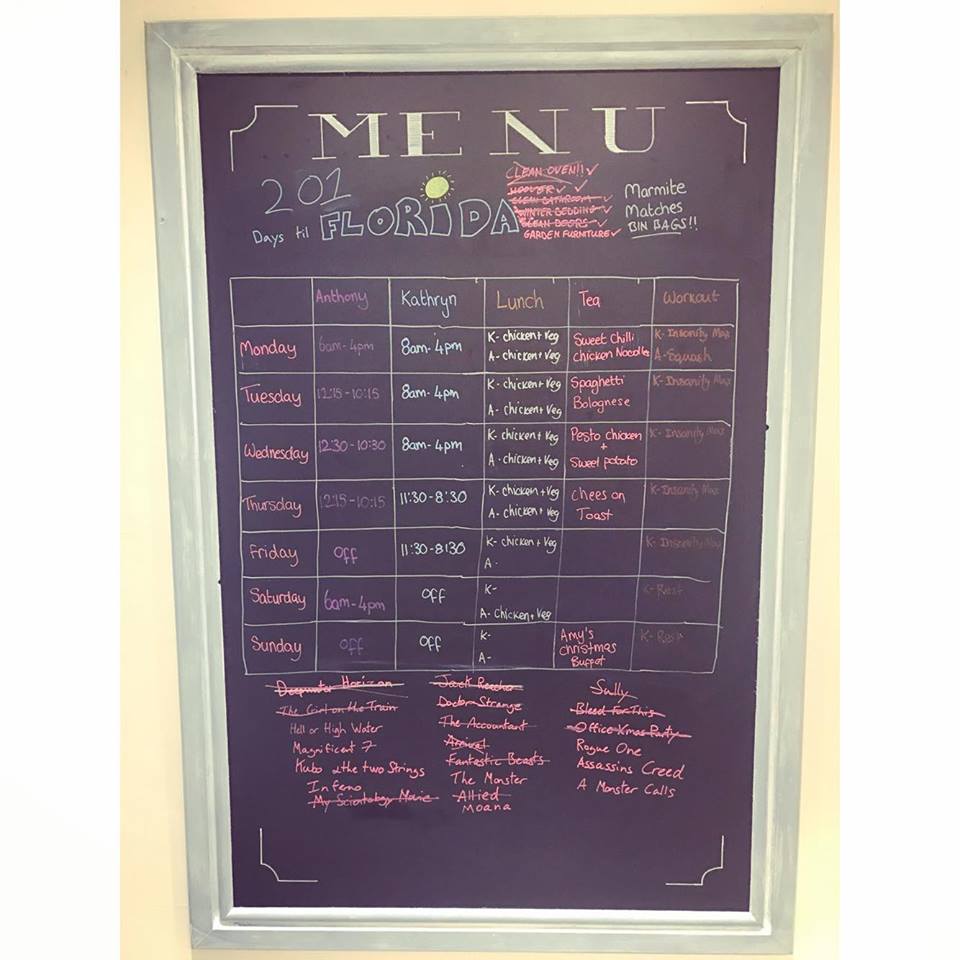 MENU
201
Days til FLORIDA
CLEAN OVEN!! ✓
HOOVER ✓ ✓
CLEAN BATHROOM ✓
WINTER BEDDING ✓
CLEAN DOORS ✓
GARDEN FURNITURE ✓
Marmite
Matches
BIN BAGS!!
Anthony Kathryn Lunch Tea Workout
Monday 6am-4pm 8am-4pm K- chicken + Veg Sweet Chilli K- Insanity Max
A- chicken + Veg Chicken Noodles A- Squash
Tuesday 12:15-10:15 8am-4pm K- chicken + Veg Spaghetti K- Insanity Max
A- chicken + Veg Bolognese
Wednesday 12:30-10:30 8am-4pm K- chicken + Veg Pesto chicken K- Insanity Max
+
A- chicken + Veg Sweet potato
Thursday 12:15-10:15 11:30-8:30 K- chicken + Veg Chees on K- Insanity Max
A- chicken + Veg Toast
Friday Off 11:30-8:30 K- chicken + Veg K- Insanity Max
A-
Saturday 6am-4pm Off K- K- Rest
A- Chicken + Veg
Sunday Off Off K- Amy's K- Rest
A- Christmas
Buffet
Deepwater Horizon
The Girl on the Train
Hell or High Water
Magnificent 7
Kubo & the two Strings
Inferno
My Scientology Movie
Jack Reacher
Doctor Strange
The Accountant
Arrival
Fantastic Beasts
The Monster
Allied
Moana
Sully
Bleed For This
Office Xmas Party
Rogue One
Assassins Creed
A Monster Calls